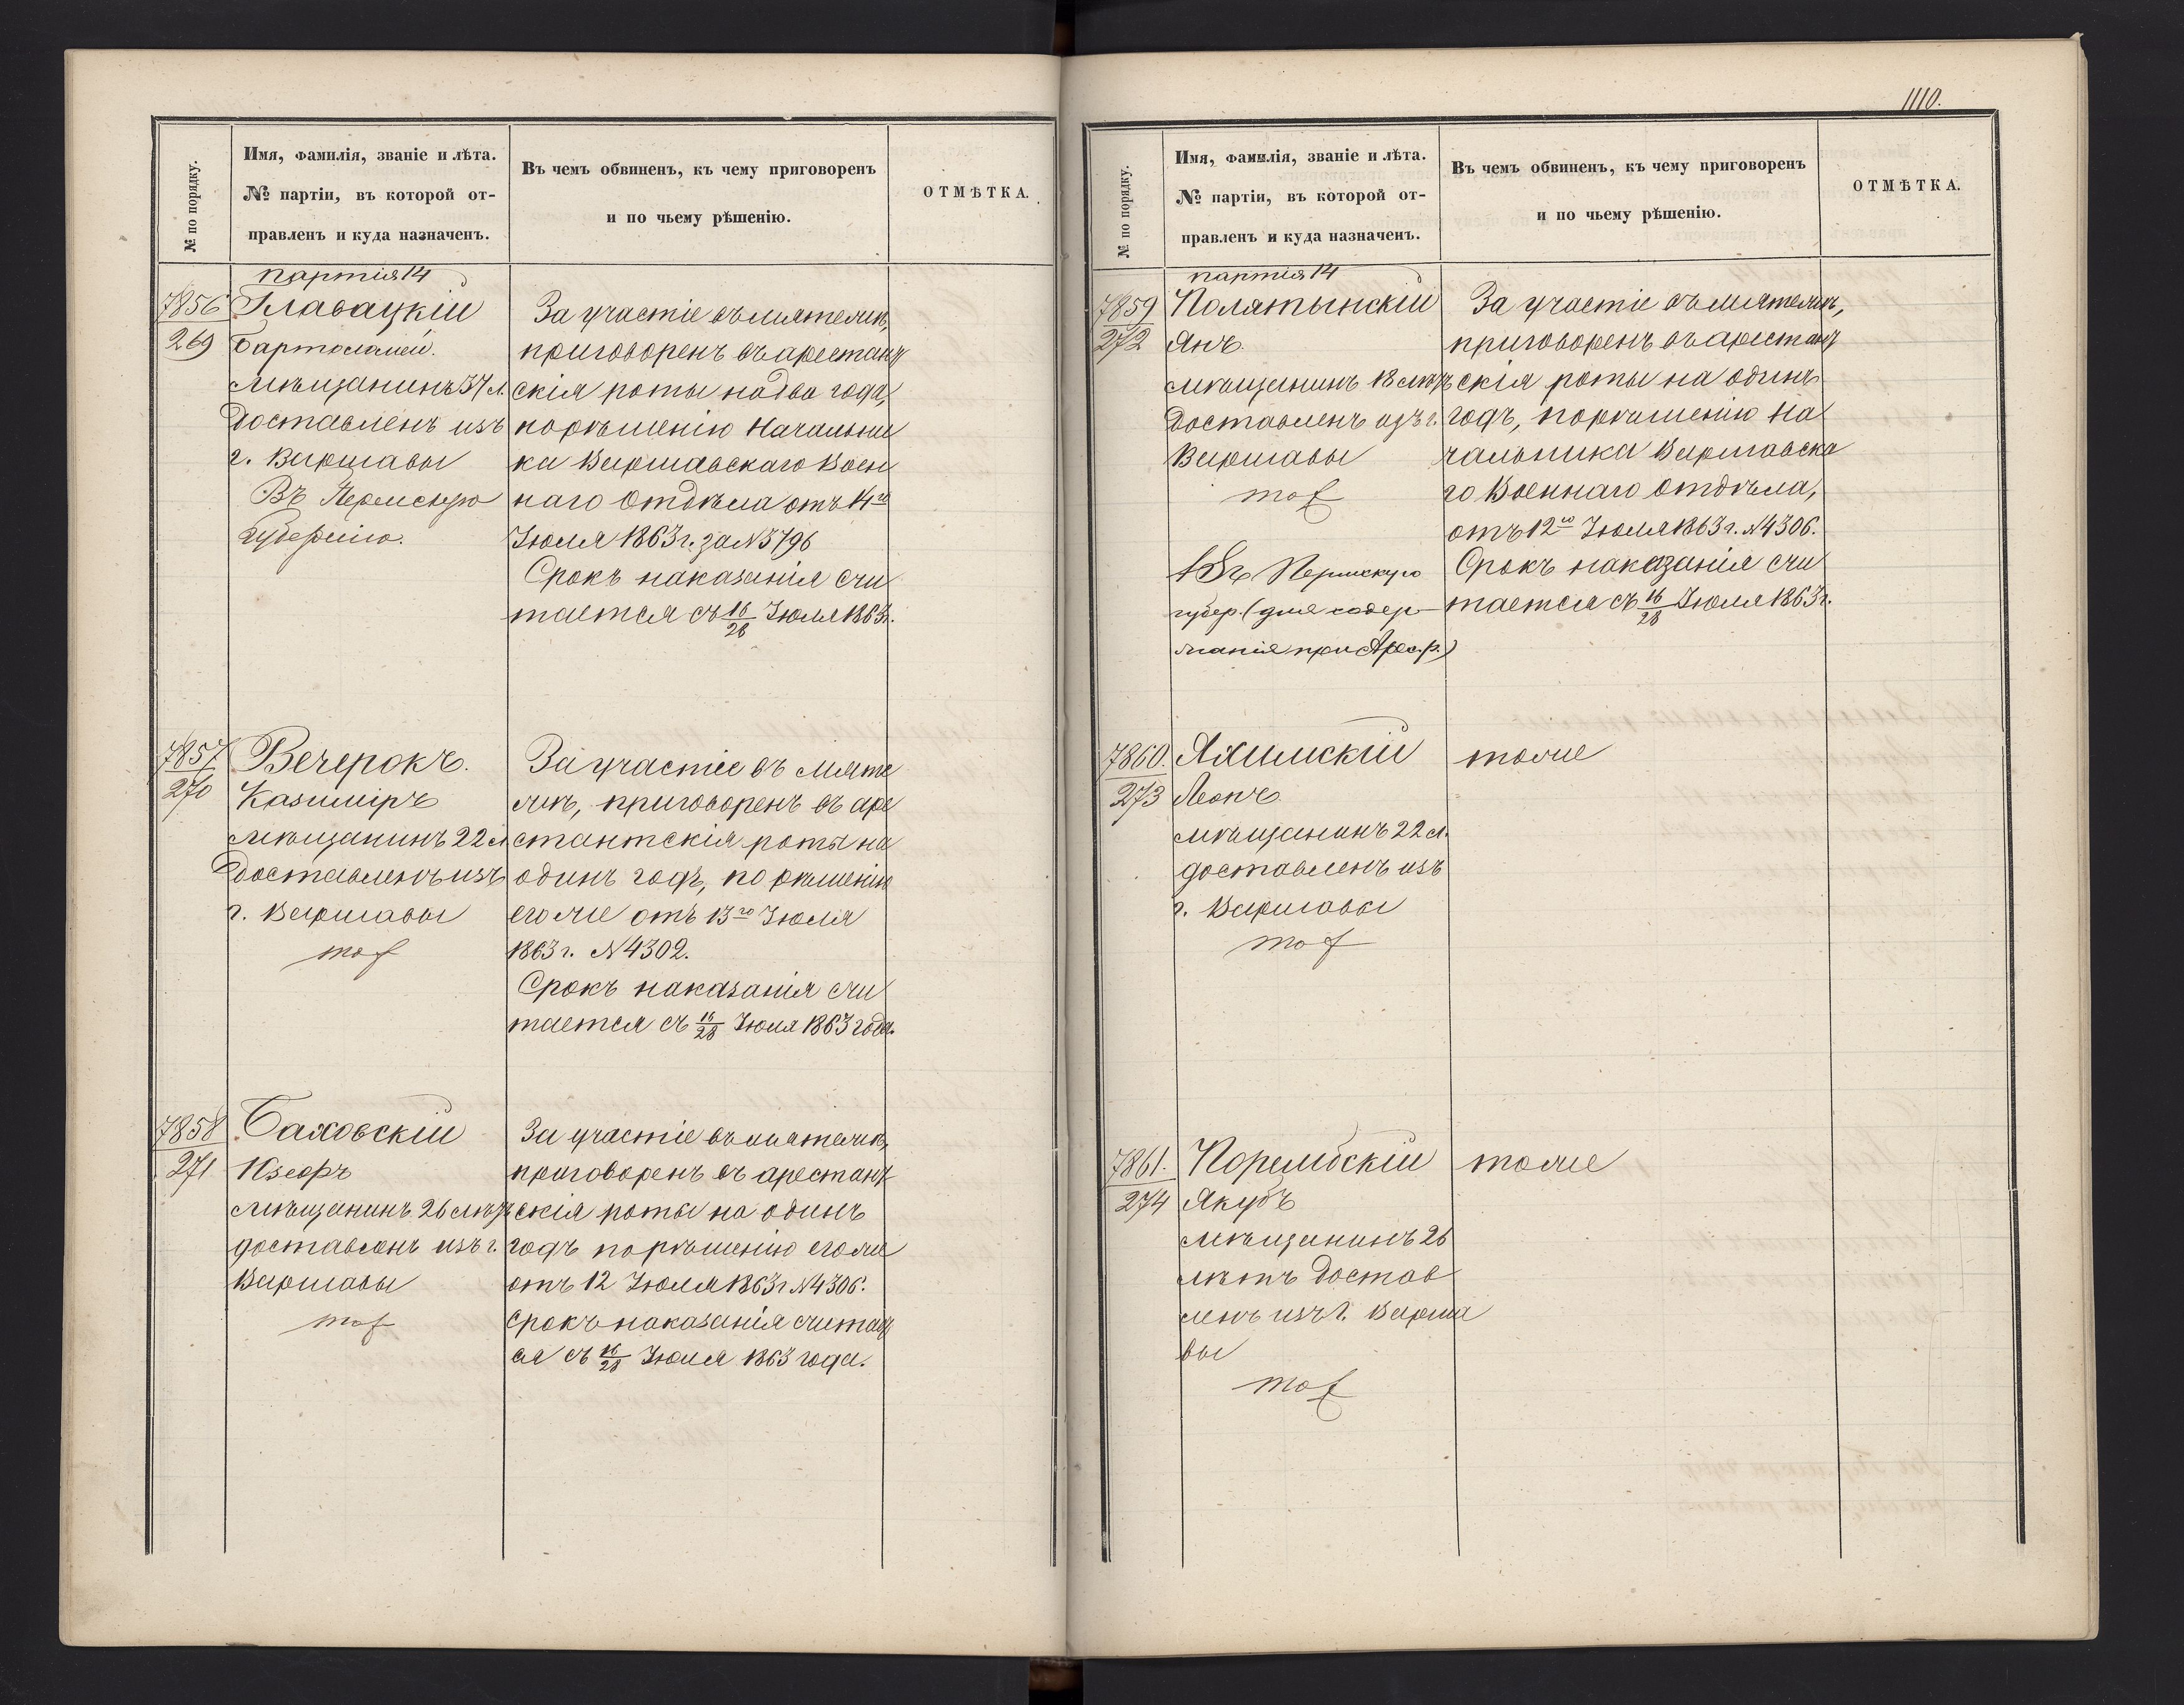 № по порядку.
Имя, фамилія, званіе и лѣта.
№ партіи, въ которой от-
правленъ и куда назначенъ.
Въ чемъ обвиненъ, къ чему приговоренъ
и по чьему рѣшенію.
ОТМѢТКА.
партія 14
7856
269
Главацкій
Бартоломей.
мѣщанинъ 37 л.
Доставленъ изъ
г. Варшавы
Въ Пермскую
губернію.
За участіе въ мятежѣ,
приговоренъ въ арестант
скія роты на два года,
по рѣшенію Начальни
ка Варшавскаго Воен
наго Отдѣла отъ 4го
Іюля 1863 г. за N 3796
Срокъ наказанія счи
тается съ 16/28 Іюля 1863 г.
7857
270
Вечерокъ.
Казиміръ
мѣщанинъ 22 л
Доставленъ изъ
г. Варшавы
тоже
За участіе въ мяте
жѣ, приговоренъ въ аре
стантскія роты на
одинъ годъ, по рѣшенію
его же отъ 13го Іюля
1863 г. N 4302.
Срокъ наказанія счи
тается съ 16/28 Іюля 1863 года.
7858
271
Баховскій
Юзефъ
мѣщанинъ 26 лѣтъ
доставленъ изъ г.
Варшавы
тоже
За участіе въ мятежѣ,
приговоренъ въ арестант
скія роты на одинъ
годъ по рѣшенію его же
отъ 12 Іюля 1863 г N 4306.
Срокъ наказанія считает
ся съ 16/28 Іюля 1863 года.
1110.
№ по порядку.
Имя, фамилія, званіе и лѣта.
№ партіи, въ которой от-
правленъ и куда назначенъ.
Въ чемъ обвиненъ, къ чему приговоренъ
и по чьему рѣшенію.
ОТМѢТКА.
партія 14
7859
272
Полятынскій
Янъ.
мѣщанинъ 18 лѣтъ
Доставленъ изъ г.
Варшавы
тоже
Въ Пермскую
губер. (для содер-
жанія при Арес. р.)
За участіе въ мятежѣ,
приговоренъ въ арестант
скія роты на одинъ
годъ, по рѣшенію На
чальника Варшавска
го Военнаго Отдѣла,
отъ 12го Іюля 1863 г. N 4306.
Срокъ наказанія счи
тается съ 16/28 Іюля 1863 г.
7860.
273
Яхимскій
Леонъ
мѣщанинъ 22 л.
доставленъ изъ
г. Варшавы
тоже
тоже
7861.
274
Порембскій
Якубъ
мѣщанинъ 26
лѣтъ Достав
ленъ изъ г. Варша
вы
тоже
тоже